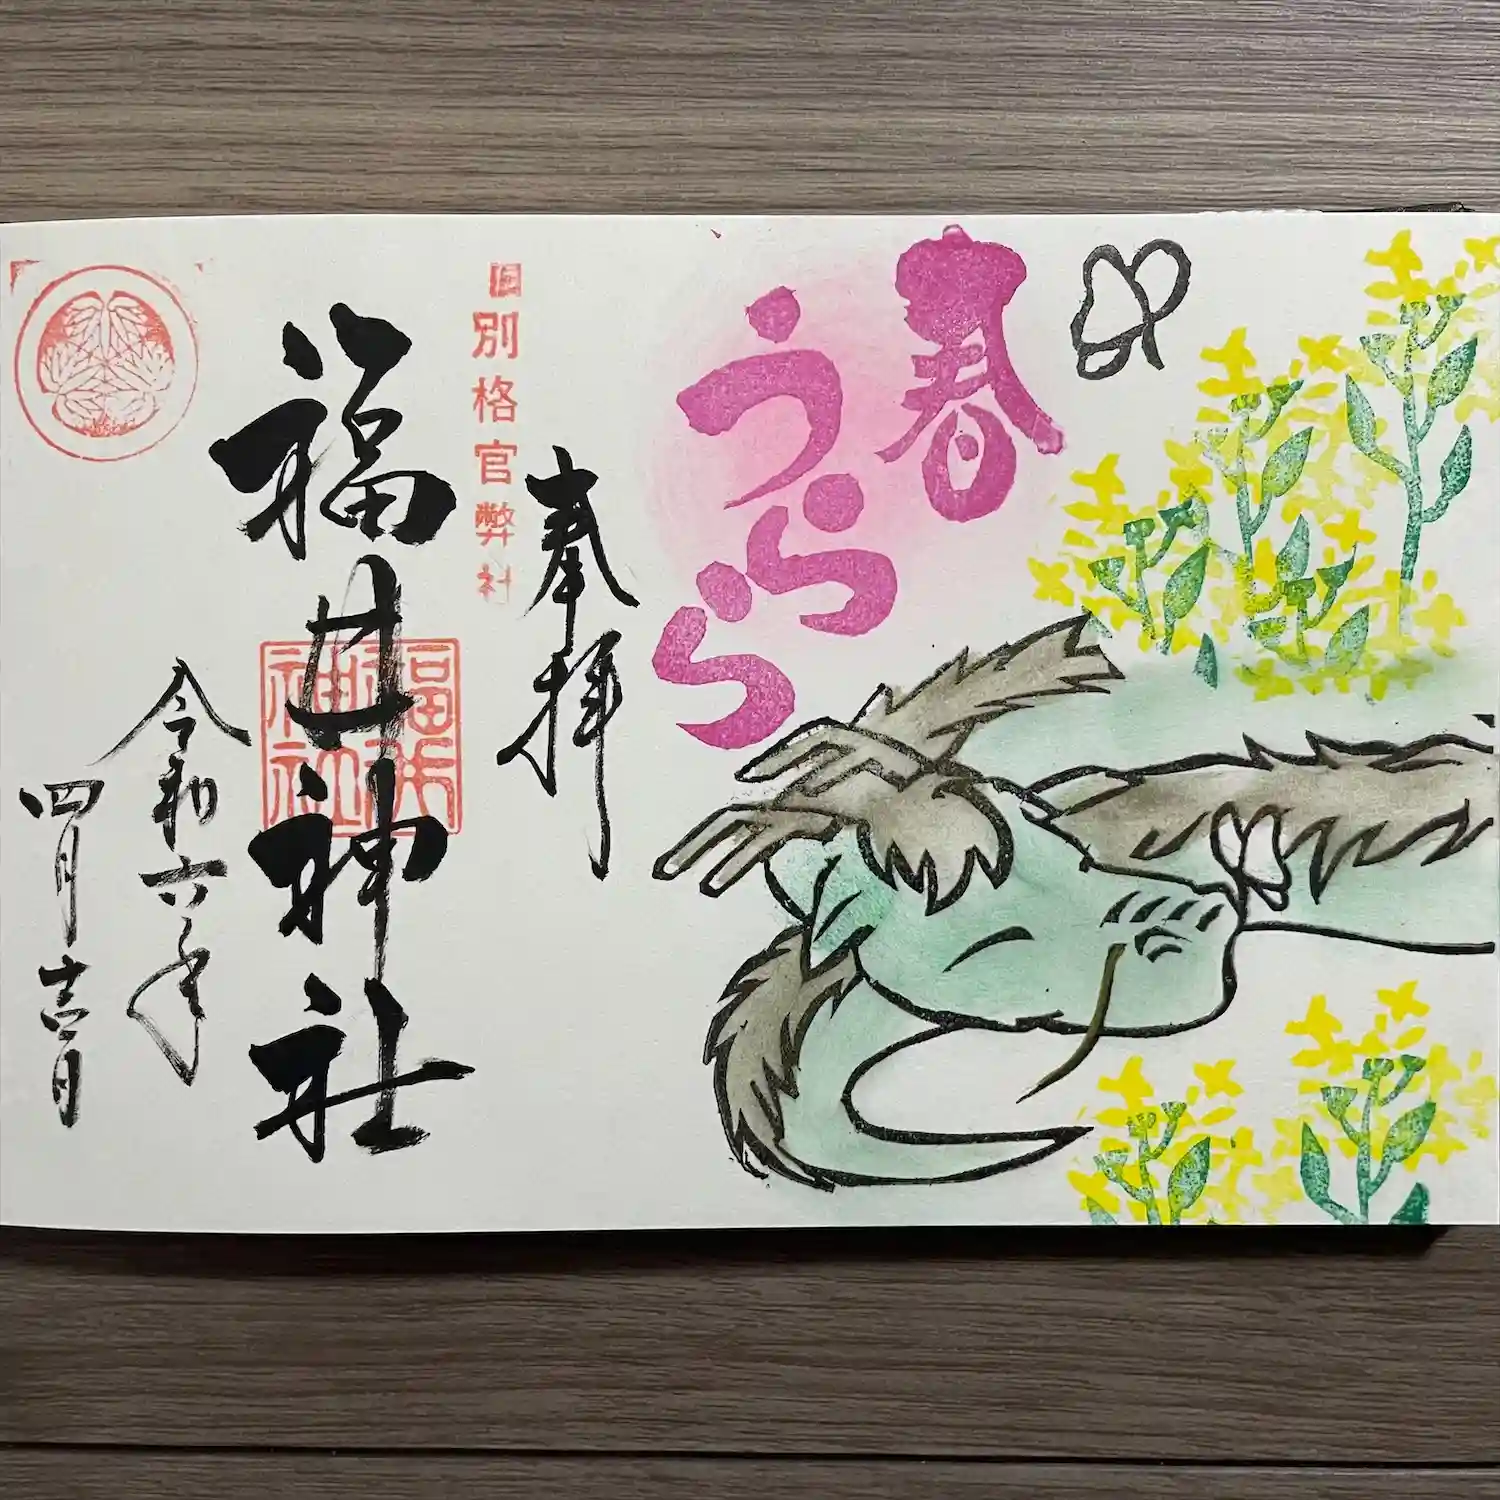 春
うらら
奉拝
旧別格官弊社
福井神社
福井神社
令和六年
四月吉日